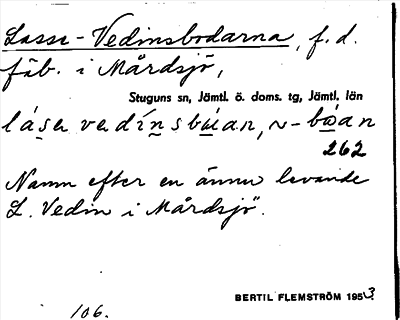 Lasse-Vedinsbodarna, f.d.
fäb. i Mårdsjö,
Stuguns sn, Jämtl. ö. doms. tg, Jämtl. län
262
Namn efter en ännu levande
L. Vedin i Mårdsjö.
BERTIL FLEMSTRÖM 1953
106.